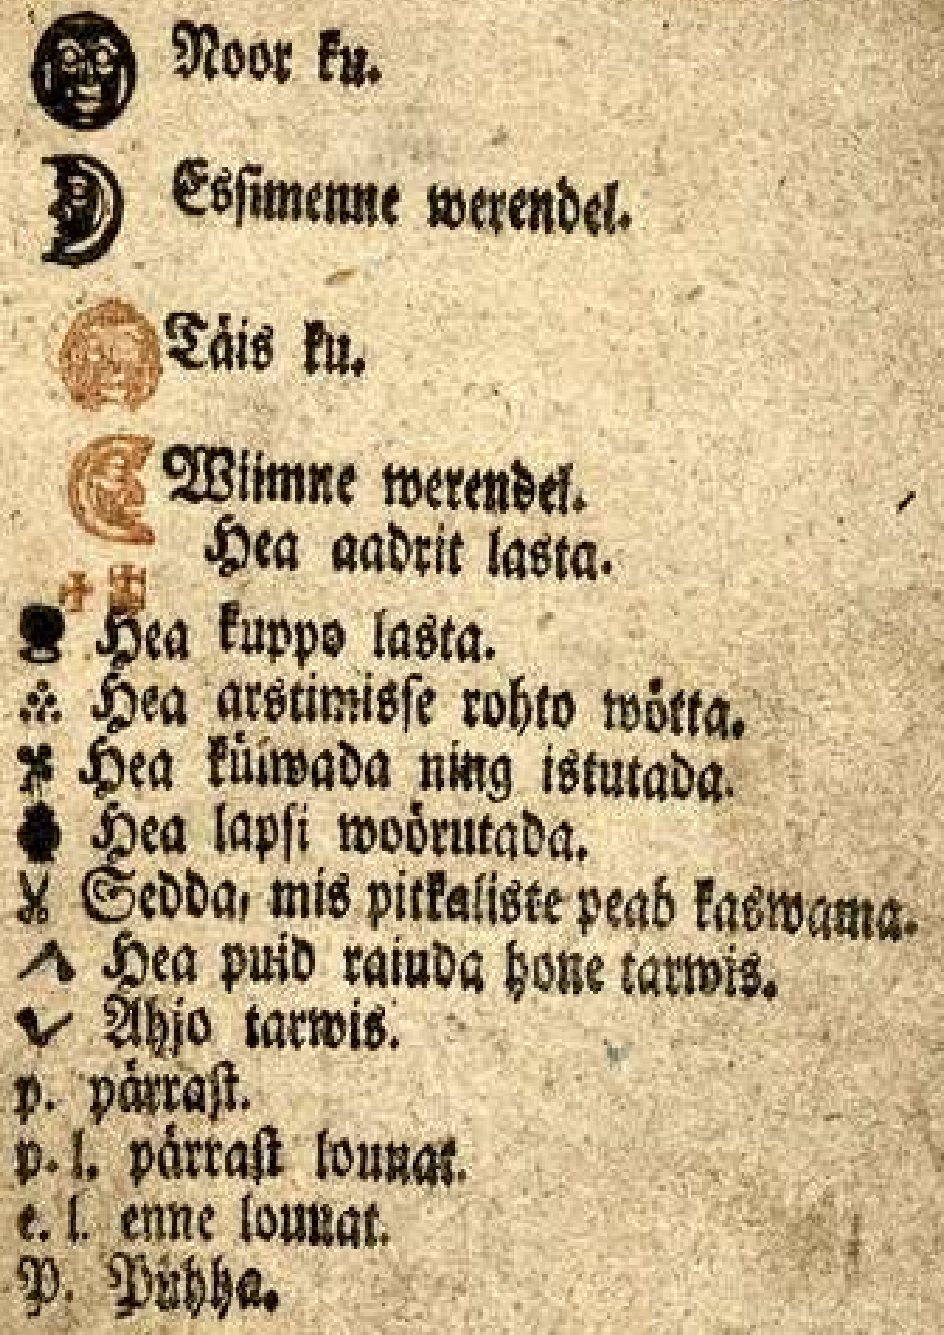 Noor ku.
Essimenne werendel.
Täis ku.
Wiimne werendel.
Hea aadrit lasta.
Hea kuppo lasta.
Hea arstimisse rohto wötta.
Hea küiwada ning istutada.
Hea lapsi woörutada.
Sedda, mis pitkaliste peab kaswama.
Hea puid raiuda hone tarwis.
Ahjo tarwis.
p. pärrast.
p. l. pärrast lounat.
e. l. enne lounat.
P. Pühha.